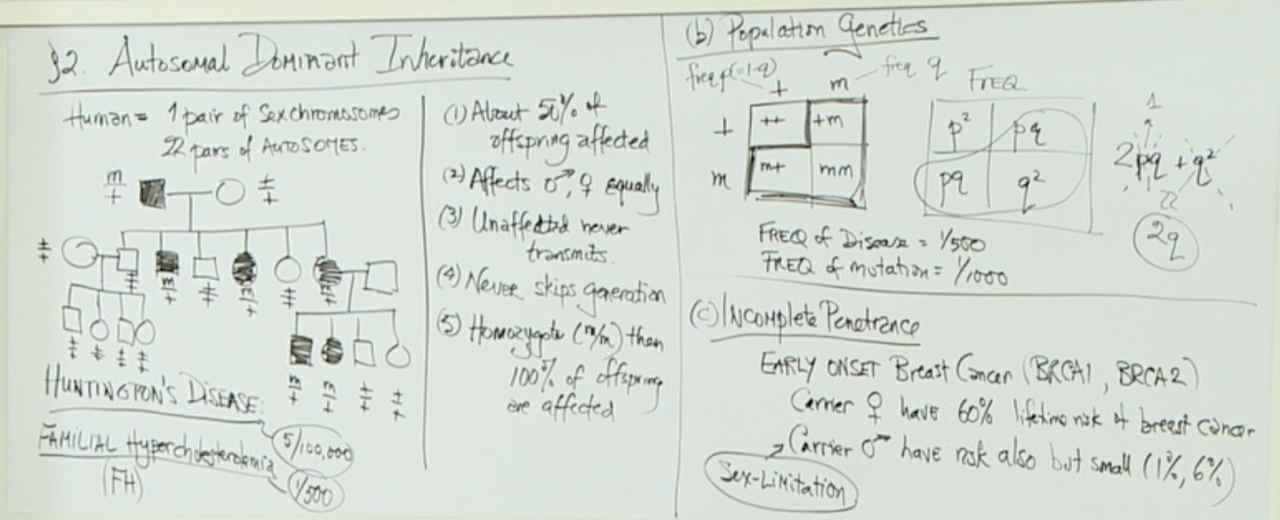 §2. Autosomal Dominant Inheritance
Human = 1 pair of Sex chromosomes
22 pairs of AUTOSOMES.
m/+ +/+
+/+ +/+ m/+ +/+ m/+ +/+ m/+
+/+ +/+ +/+ +/+
m/+ m/+ +/+ +/+
HUNTINGTON'S DISEASE:
5/100,000
FAMILIAL Hypercholesterolemia
(FH)
1/500
(1) About 50% of
offspring affected
(2) Affects ♂, ♀ equally
(3) Unaffected never
transmits.
(4) Never skips generation
(5) Homozygote (m/m) then
100% of offspring
are affected
(b) Population Genetics
freq p(=1-q) + m freq q
+ ++ +m
m m+ mm
FREQ
p² pq
pq q²
1
2pq + q²
2q
FREQ of Disease = 1/500
FREQ of mutation = 1/1000
(c) INcomplete Penetrance
EARLY ONSET Breast Cancer (BRCA1, BRCA2)
Carrier ♀ have 60% lifetime risk of breast cancer
→ Carrier ♂ have risk also but small (1%, 6%)
Sex-Limitation